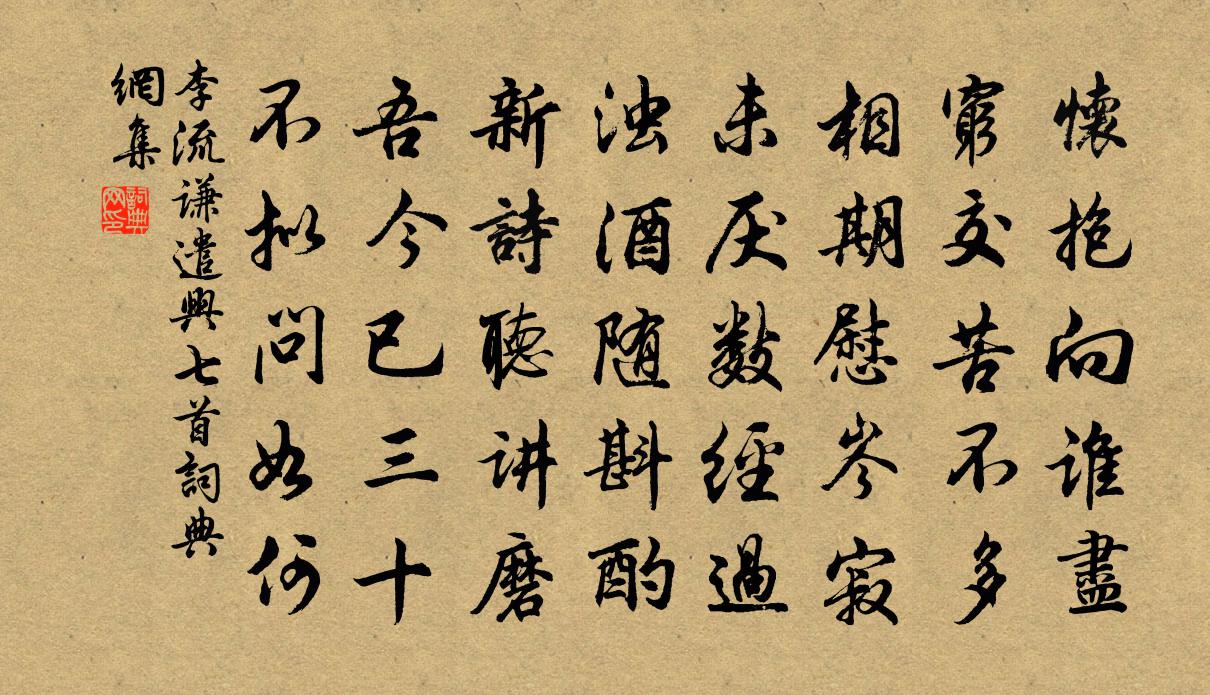 懷抱向誰盡
窮交苦不多
相期慰岑寂
未厌數經過
浊酒随斟酌
新詩聽讲磨
吾今已三十
不拟問如何
李流谦遣興七首詞典
網集
詞典
网印